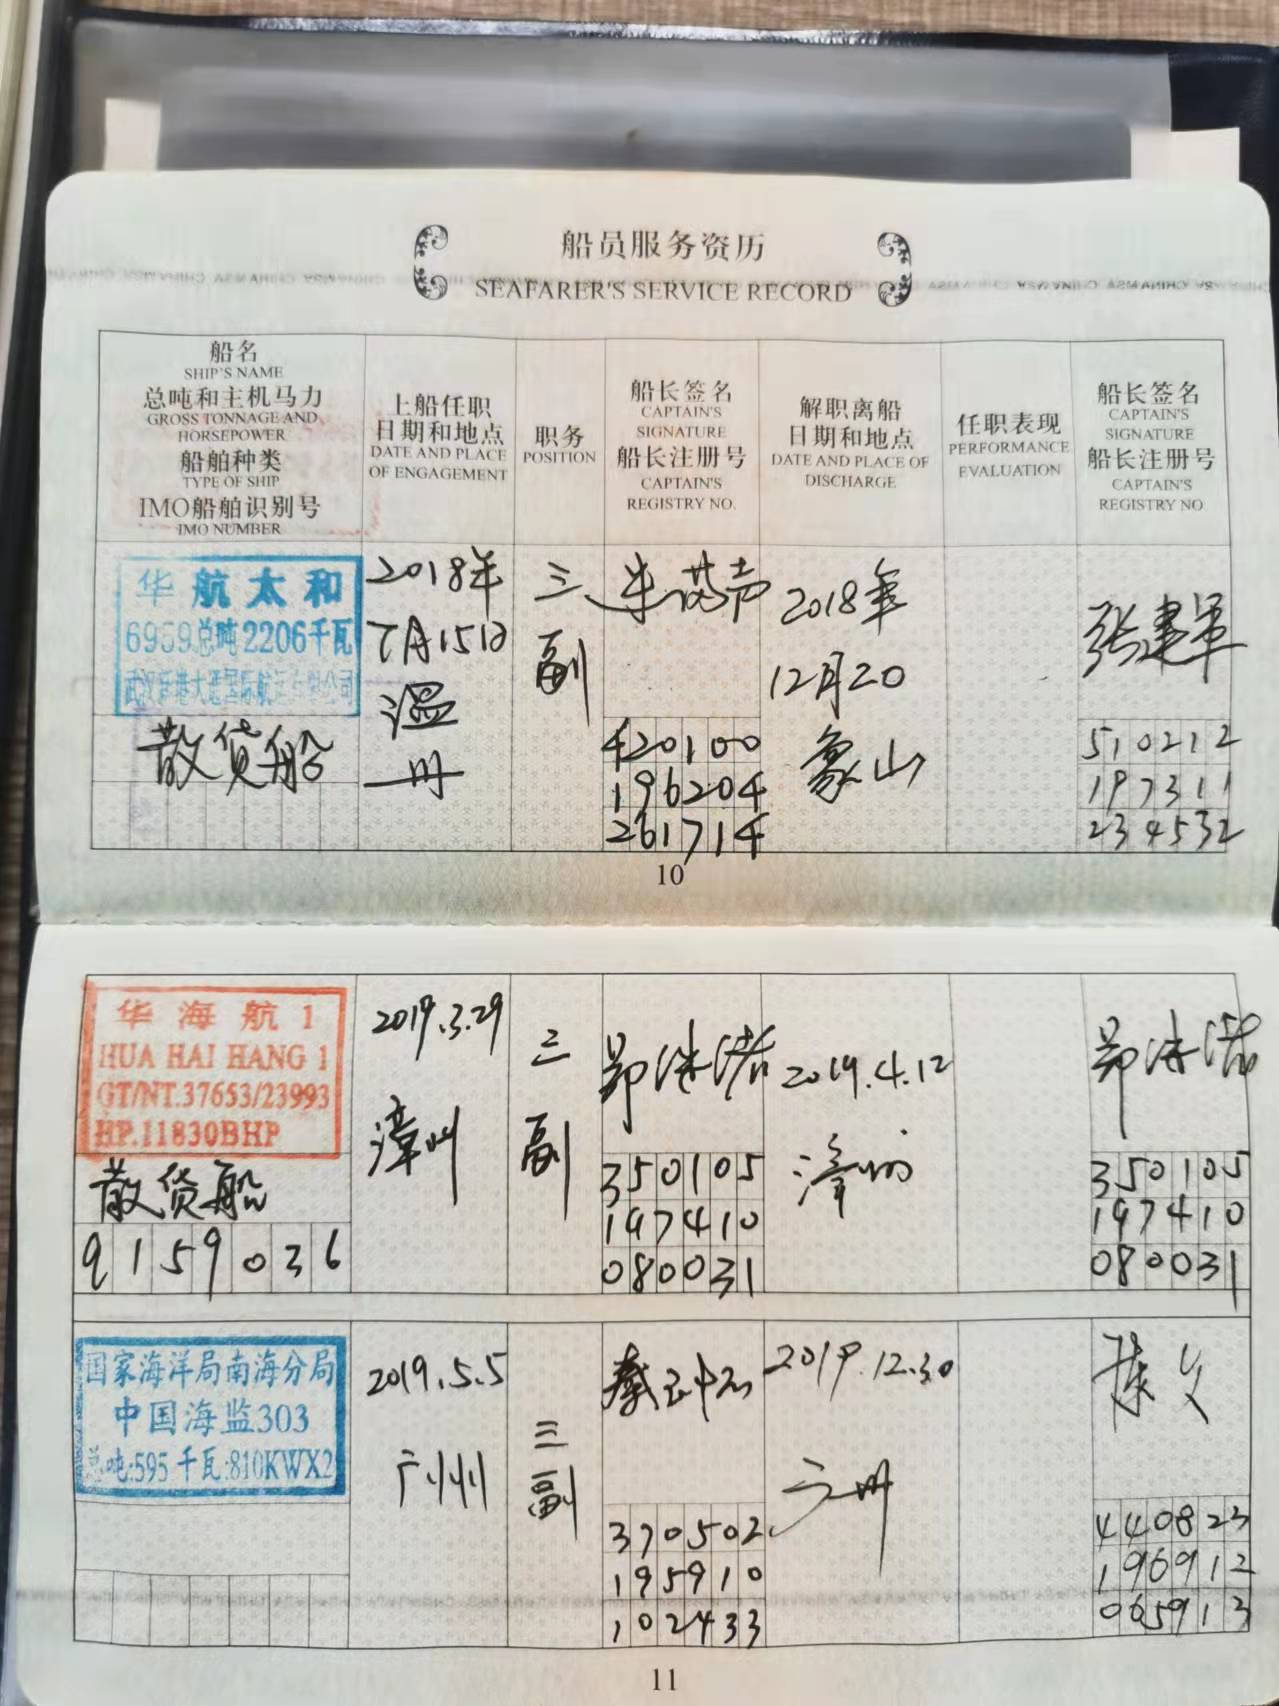 船员服务资历
SEAFARER'S SERVICE RECORD
船名
SHIP'S NAME
总吨和主机马力
GROSS TONNAGE AND
HORSEPOWER
船舶种类
TYPE OF SHIP
IMO船舶识别号
IMO NUMBER
上船任职
日期和地点
DATE AND PLACE
OF ENGAGEMENT
职务
POSITION
船长签名
CAPTAIN'S
SIGNATURE
船长注册号
CAPTAIN'S
REGISTRY NO.
解职离船
日期和地点
DATE AND PLACE OF
DISCHARGE
任职表现
PERFORMANCE
EVALUATION
船长签名
CAPTAIN'S
SIGNATURE
船长注册号
CAPTAIN'S
REGISTRY NO
华航太和
6959总吨2206千瓦
散货船
2018年
7月15日
温
州
三
副
420100
196204
261714
2018年
12月20
象山
张建军
510212
197311
234532
10
华海航1
HUA HAI HANG 1
GT/NT.37653/23993
HP.11830BHP
散货船
9159036
2019.3.29
漳州
三
副
350105
197410
080031
2019.4.12
漳州
350105
197410
080031
国家海洋局南海分局
中国海监303
总吨:595 千瓦:810KWX2
2019.5.5
广州
三
副
370502
195910
102433
2019.12.30
广州
440823
196912
065913
11